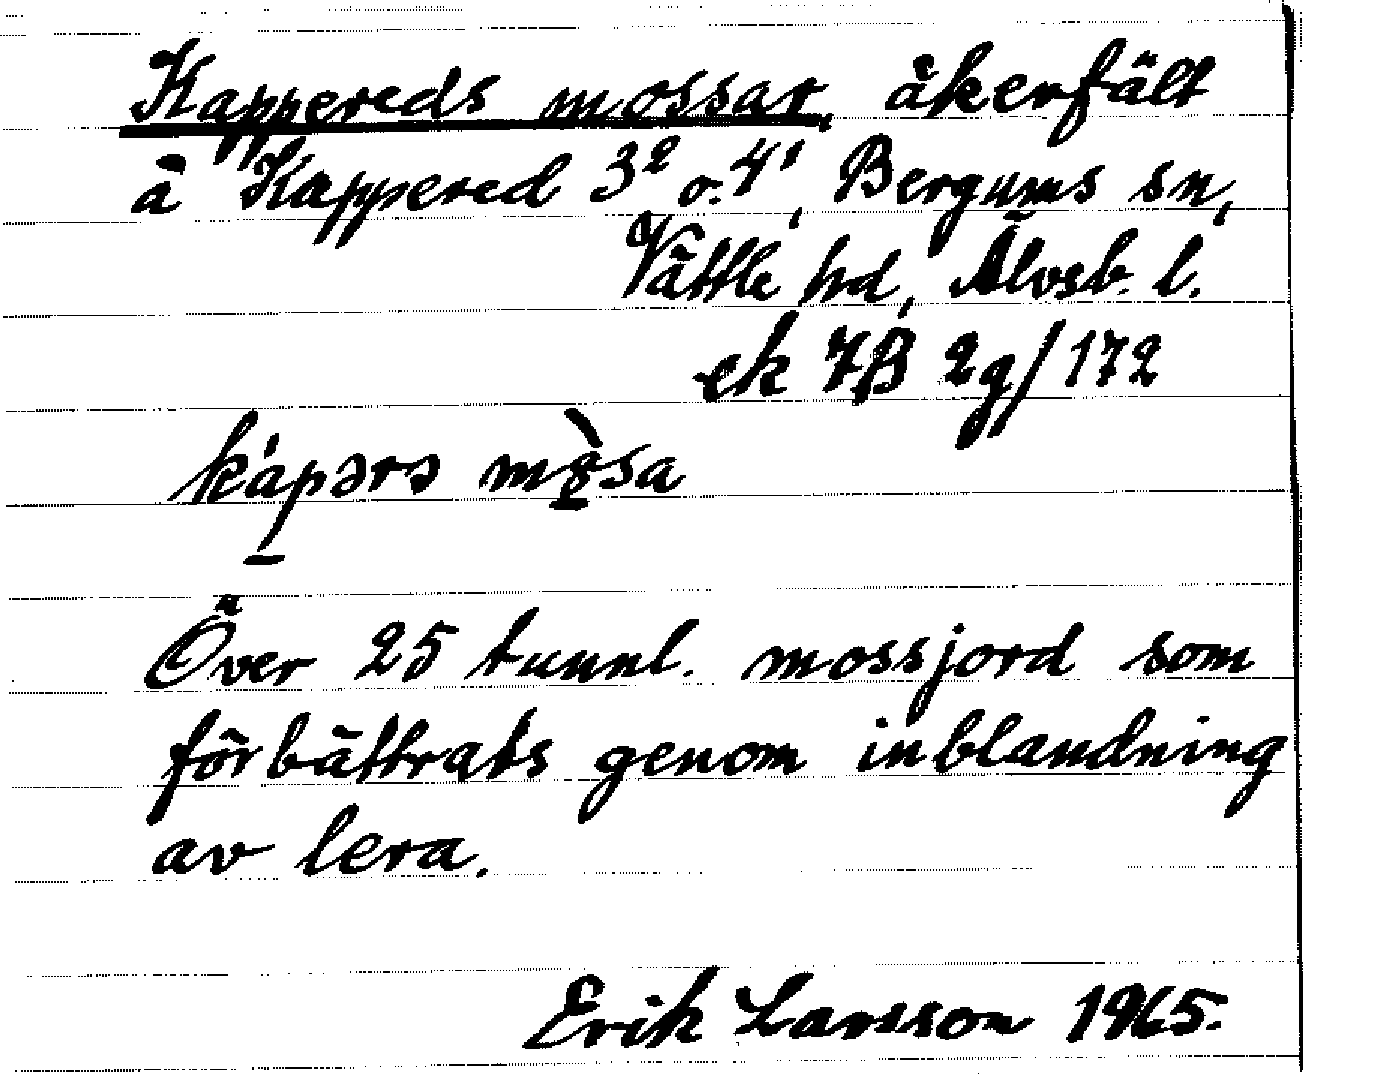 Kappereds mossar, åkerfält
å Kappered 3² o. 4¹, Bergums sn,
Vättle hd, Älvsb. l.
ek 7B 2g/172
kápərs mò̱sa
Över 25 tunnl. mossjord som
förbättrats genom inblandning
av lera.
Erik Larsson 1965.